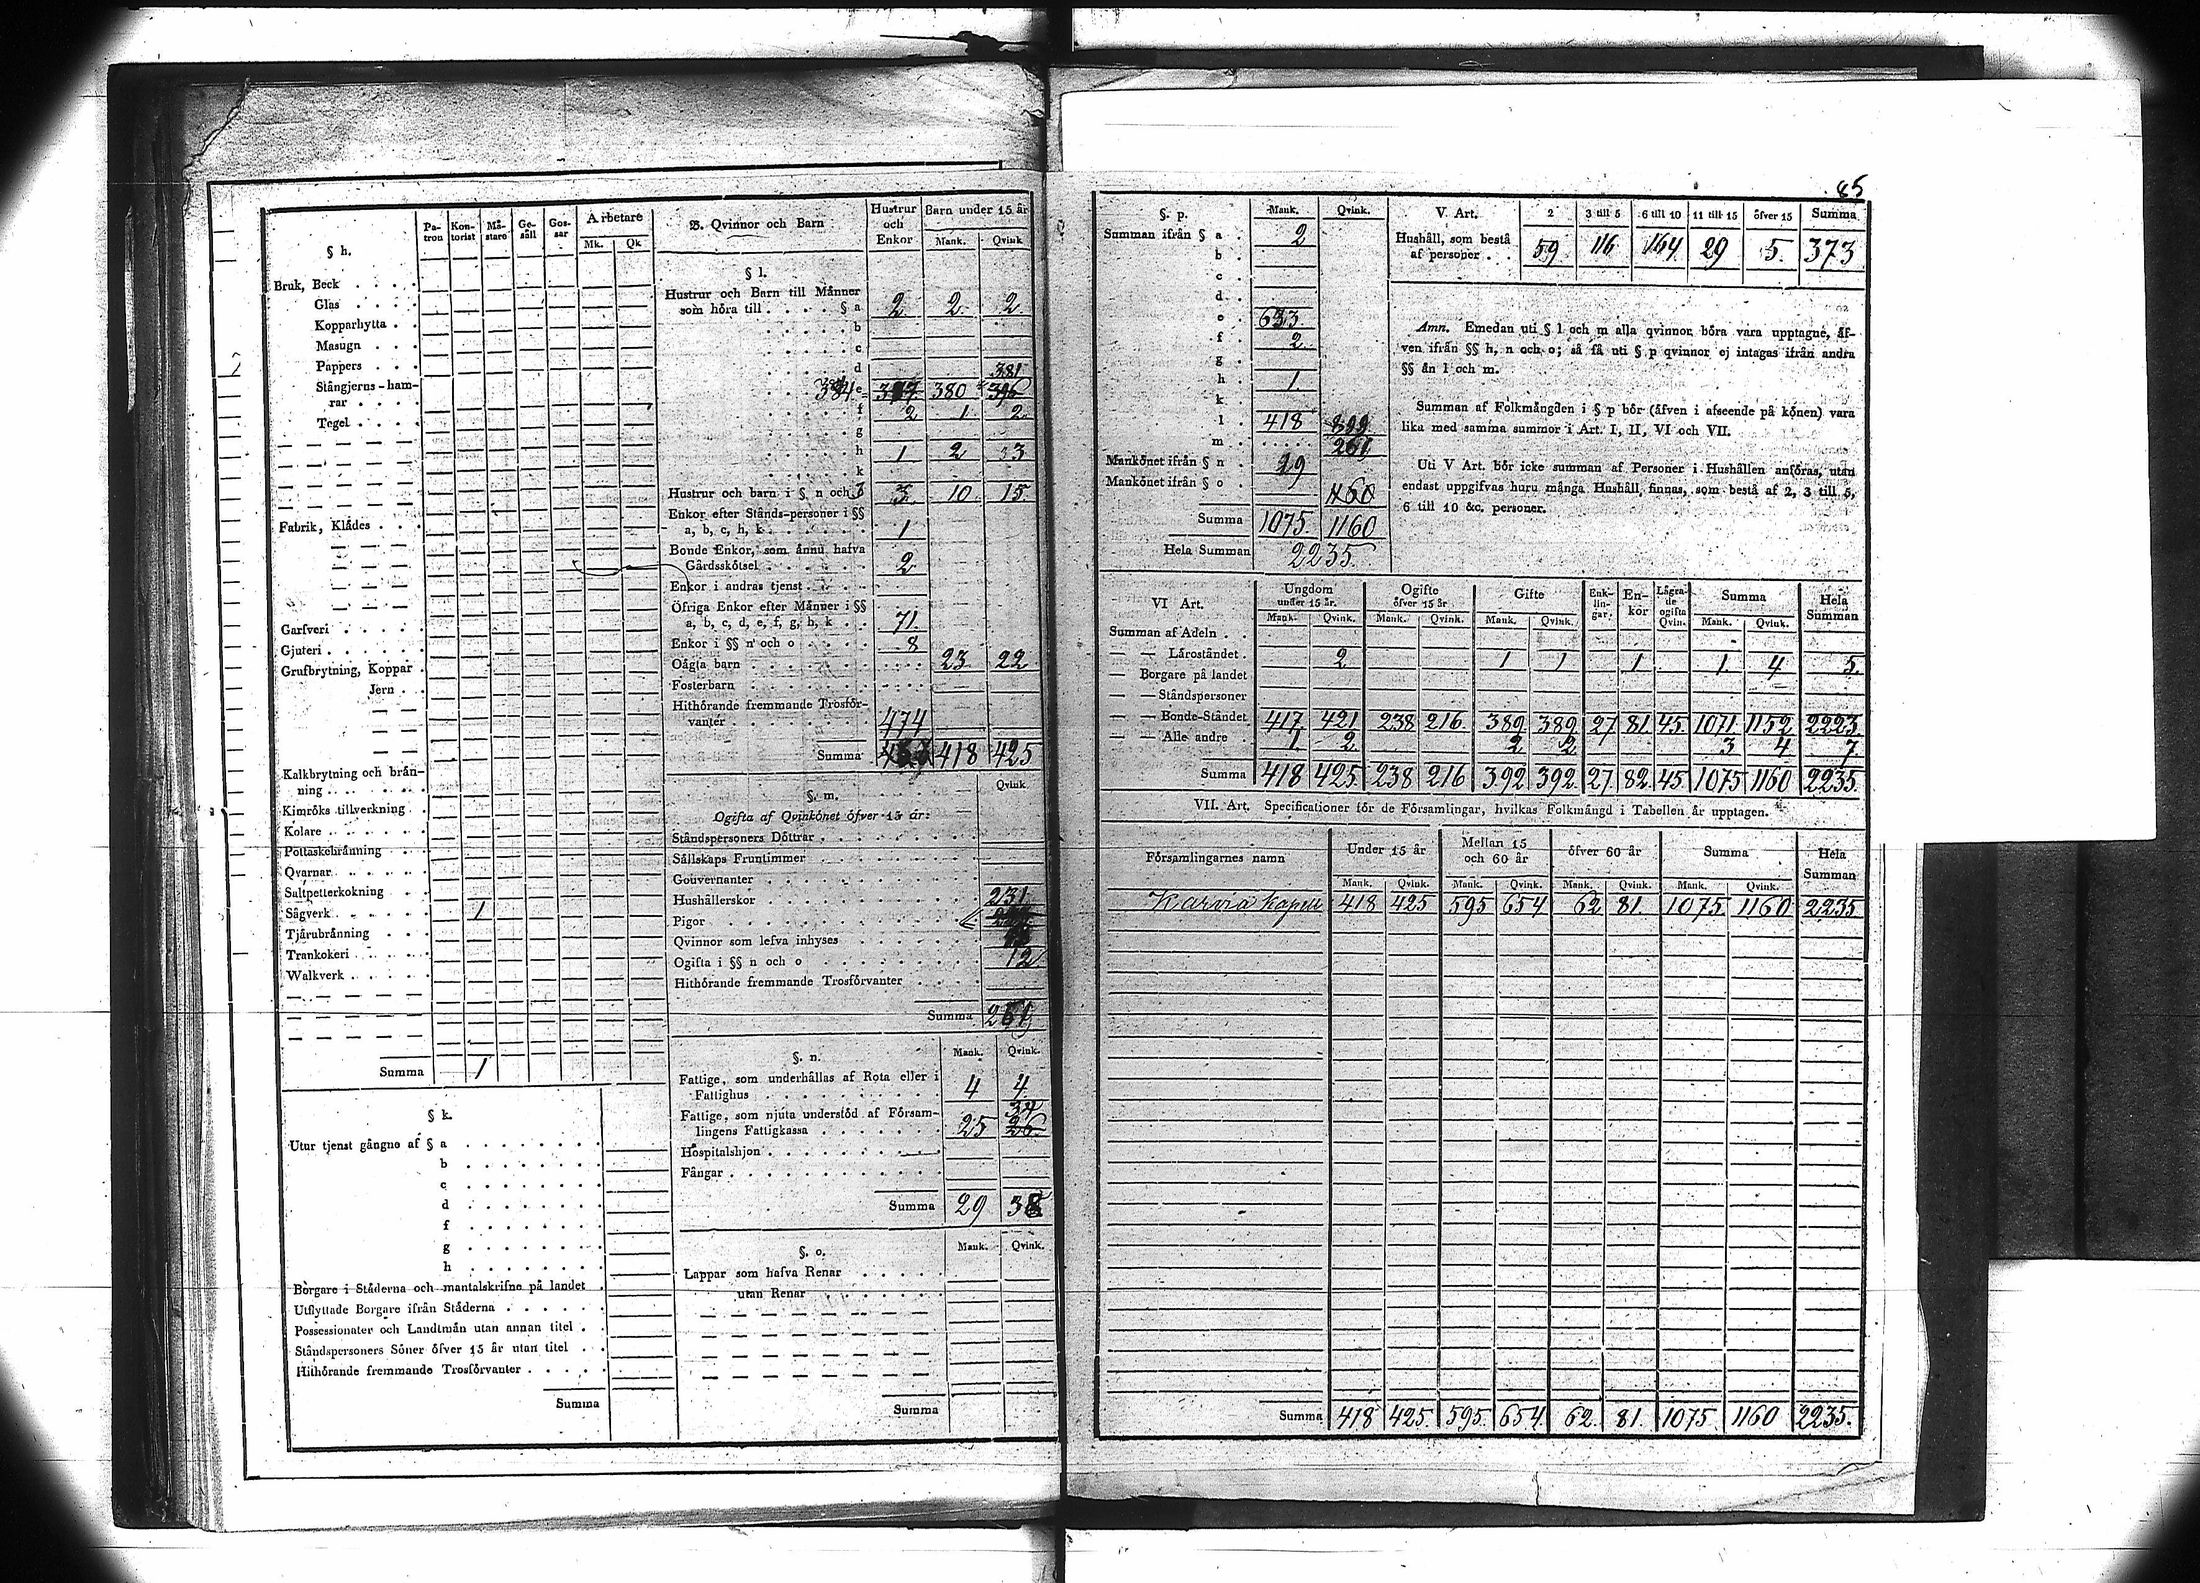 § h.
Patron Kontorist Måstare Gesäll Gossar Arbetare
Mk. Qk
Bruk, Beck
Glas
Kopparhytta
Masugn
Pappers
Stångjerns-hamrar
Tegel
Fabrik, Klådes
Garfveri
Gjuteri
Grufbrytning, Koppar
Jern
Kalkbrytning och brånning
Kimröks tillverkning
Kolare
Pottaskebrånning
Qvarnar
Saltpetterkokning
Sågverk 1
Tjårubrånning
Trankokeri
Walkverk
Summa 1
§ k.
Utur tjenst gångne af § a
b
c
d
f
g
h
Borgare i Ståderna och mantalskrifne på landet
Utflyttade Borgare ifrån Ståderna
Possessionater och Landtmån utan annan titel
Ståndspersoners Söner öfver 15 år utan titel
Hithörande fremmande Trosförvanter
Summa
B. Qvinnor och Barn Hustrur och Enkor Barn under 15 år
Mank. Qvink
§ l.
Hustrur och Barn till Månner
som höra till § a 2 2 2
b
c
d 381
384 e 380
f 2 1 2
g
h 1 2 3
k
Hustrur och barn i § n och 3 10 15
Enkor efter Stånds-personer i §§
a, b, c, h, k 1
Bonde Enkor, som ånnu hafva
Gårdsskötsel 2
Enkor i andras tjenst
Öfriga Enkor efter Månner i §§
a, b, c, d, e, f, g, h, k 71
Enkor i §§ n och o 8
Oågta barn 23 22
Fosterbarn
Hithörande fremmande Trosförvanter 474
Summa 418 425
§. m. Qvink
Ogifta af Qvinkönet öfver 15 år:
Ståndspersoners Döttrar
Sållskaps Fruntimmer
Gouvernanter
Hushållerskor 231
Pigor
Qvinnor som lefva inhyses
Ogifta i §§ n och o 12
Hithörande fremmande Trosförvanter
Summa 261
§. n. Mank. Qvink.
Fattige, som underhållas af Rota eller i
Fattighus 4 4
Fattige, som njuta understöd af Församlingens Fattigkassa 25 34 26
Hospitalshjon
Fångar
Summa 29 38
§. o. Mank. Qvink.
Lappar som hafva Renar
utan Renar
Summa
85
§. p. Mank. Qvink.
Summan ifrån § a 2
b
c
d
e 633
f 2
g
h 1
k
l 418 899
m 261
Mankönet ifrån § n 19
Mankönet ifrån § o 1160
Summa 1075 1160
Hela Summan 2235
V. Art. 2 3 till 5 6 till 10 11 till 15 öfver 15 Summa
Hushåll, som bestå
af personer 59 116 164 29 5 373
Amn. Emedan uti § l och m alla qvinnor böra vara upptagne, åf-
ven ifrån §§ h, n och o; så få uti § p qvinnor ej intagas ifrån andra
§§ ån l och m.
Summan af Folkmångden i § p bör (åfven i afseende på könen) vara
lika med samma summor i Art. I, II, VI och VII.
Uti V Art. bör icke summan af Personer i Hushållen anföras, utan
endast uppgifvas huru många Hushåll finnas, som bestå af 2, 3 till 5,
6 till 10 &c. personer.
VI Art. Ungdom under 15 år. Ogifte öfver 15 år Gifte Enklingar. Enkor Lågrade ogifta Qvin. Summa Hela Summan
Mank. Qvink. Mank. Qvink. Mank. Qvink. Mank. Qvink.
Summan af Adeln
— — Låroståndet 2 1 1 1 1 4 5
— Borgare på landet
— — Ståndspersoner
— — Bonde-Ståndet 417 421 238 216 389 389 27 81 45 1071 1152 2223
— — Alle andre 1 2 2 2 3 4 7
Summa 418 425 238 216 392 392 27 82 45 1075 1160 2235
VII. Art. Specificationer för de Församlingar, hvilkas Folkmångd i Tabellen år upptagen.
Församlingarnes namn Under 15 år Mellan 15 och 60 år öfver 60 år Summa Hela Summan
Mank. Qvink. Mank. Qvink. Mank. Qvink. Mank. Qvink.
Karvia Kapell 418 425 595 654 62 81 1075 1160 2235
Summa 418 425 595 654 62 81 1075 1160 2235